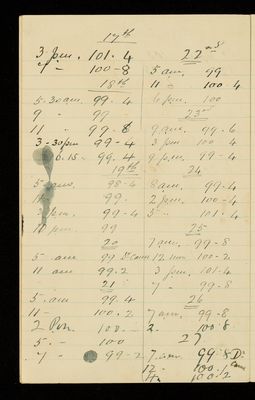 17th
3 p.m. 101.4
7 " 100-8
18th
5-30 am. 99.4
9 " 99
11 " 99.8
3-30 pm 99-4
6.15 - 99.4
19th
5- am. 98-4
11 " 99.
3 p.m. 99-4
10 pm. 99
20
5- am 99 Dr Came
11 am 99.2
21
5. am 99.4
11 - 100.2
2 P.m. 100.-
5. - 100
7 - 99-2
22nd
5 am. 99
11 " 100.4
6 pm. 100
23rd
9 am. 99.6
3 pm 100.4
9 p.m. 99-4
24
8 am. 99.4
2 pm. 100-4
5 " 101.4
25
7 am. 99-8
12 noon 100-2
3 pm. 101.4
7 " 99-8
26
7 am. 99-8
2. 100.8
27
7. am 99.8 Dr Came
12 - 100.1
4. 100.2